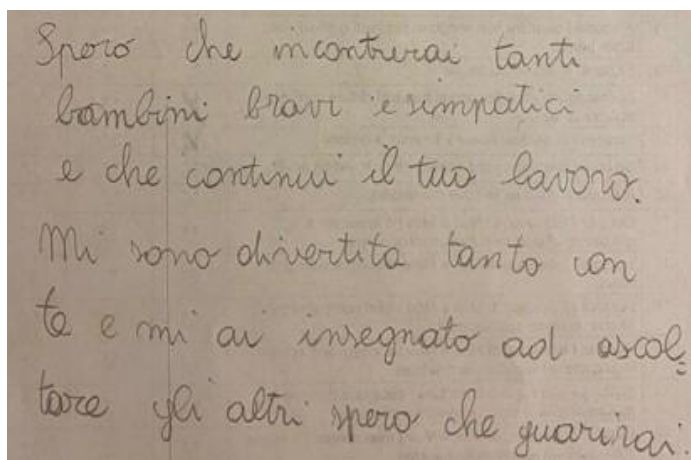 Spero che incontrerai tanti
bambini bravi e simpatici
e che continui il tuo lavoro.
Mi sono divertita tanto con
te e mi ai insegnato ad ascol=
tare gli altri spero che guarirai.